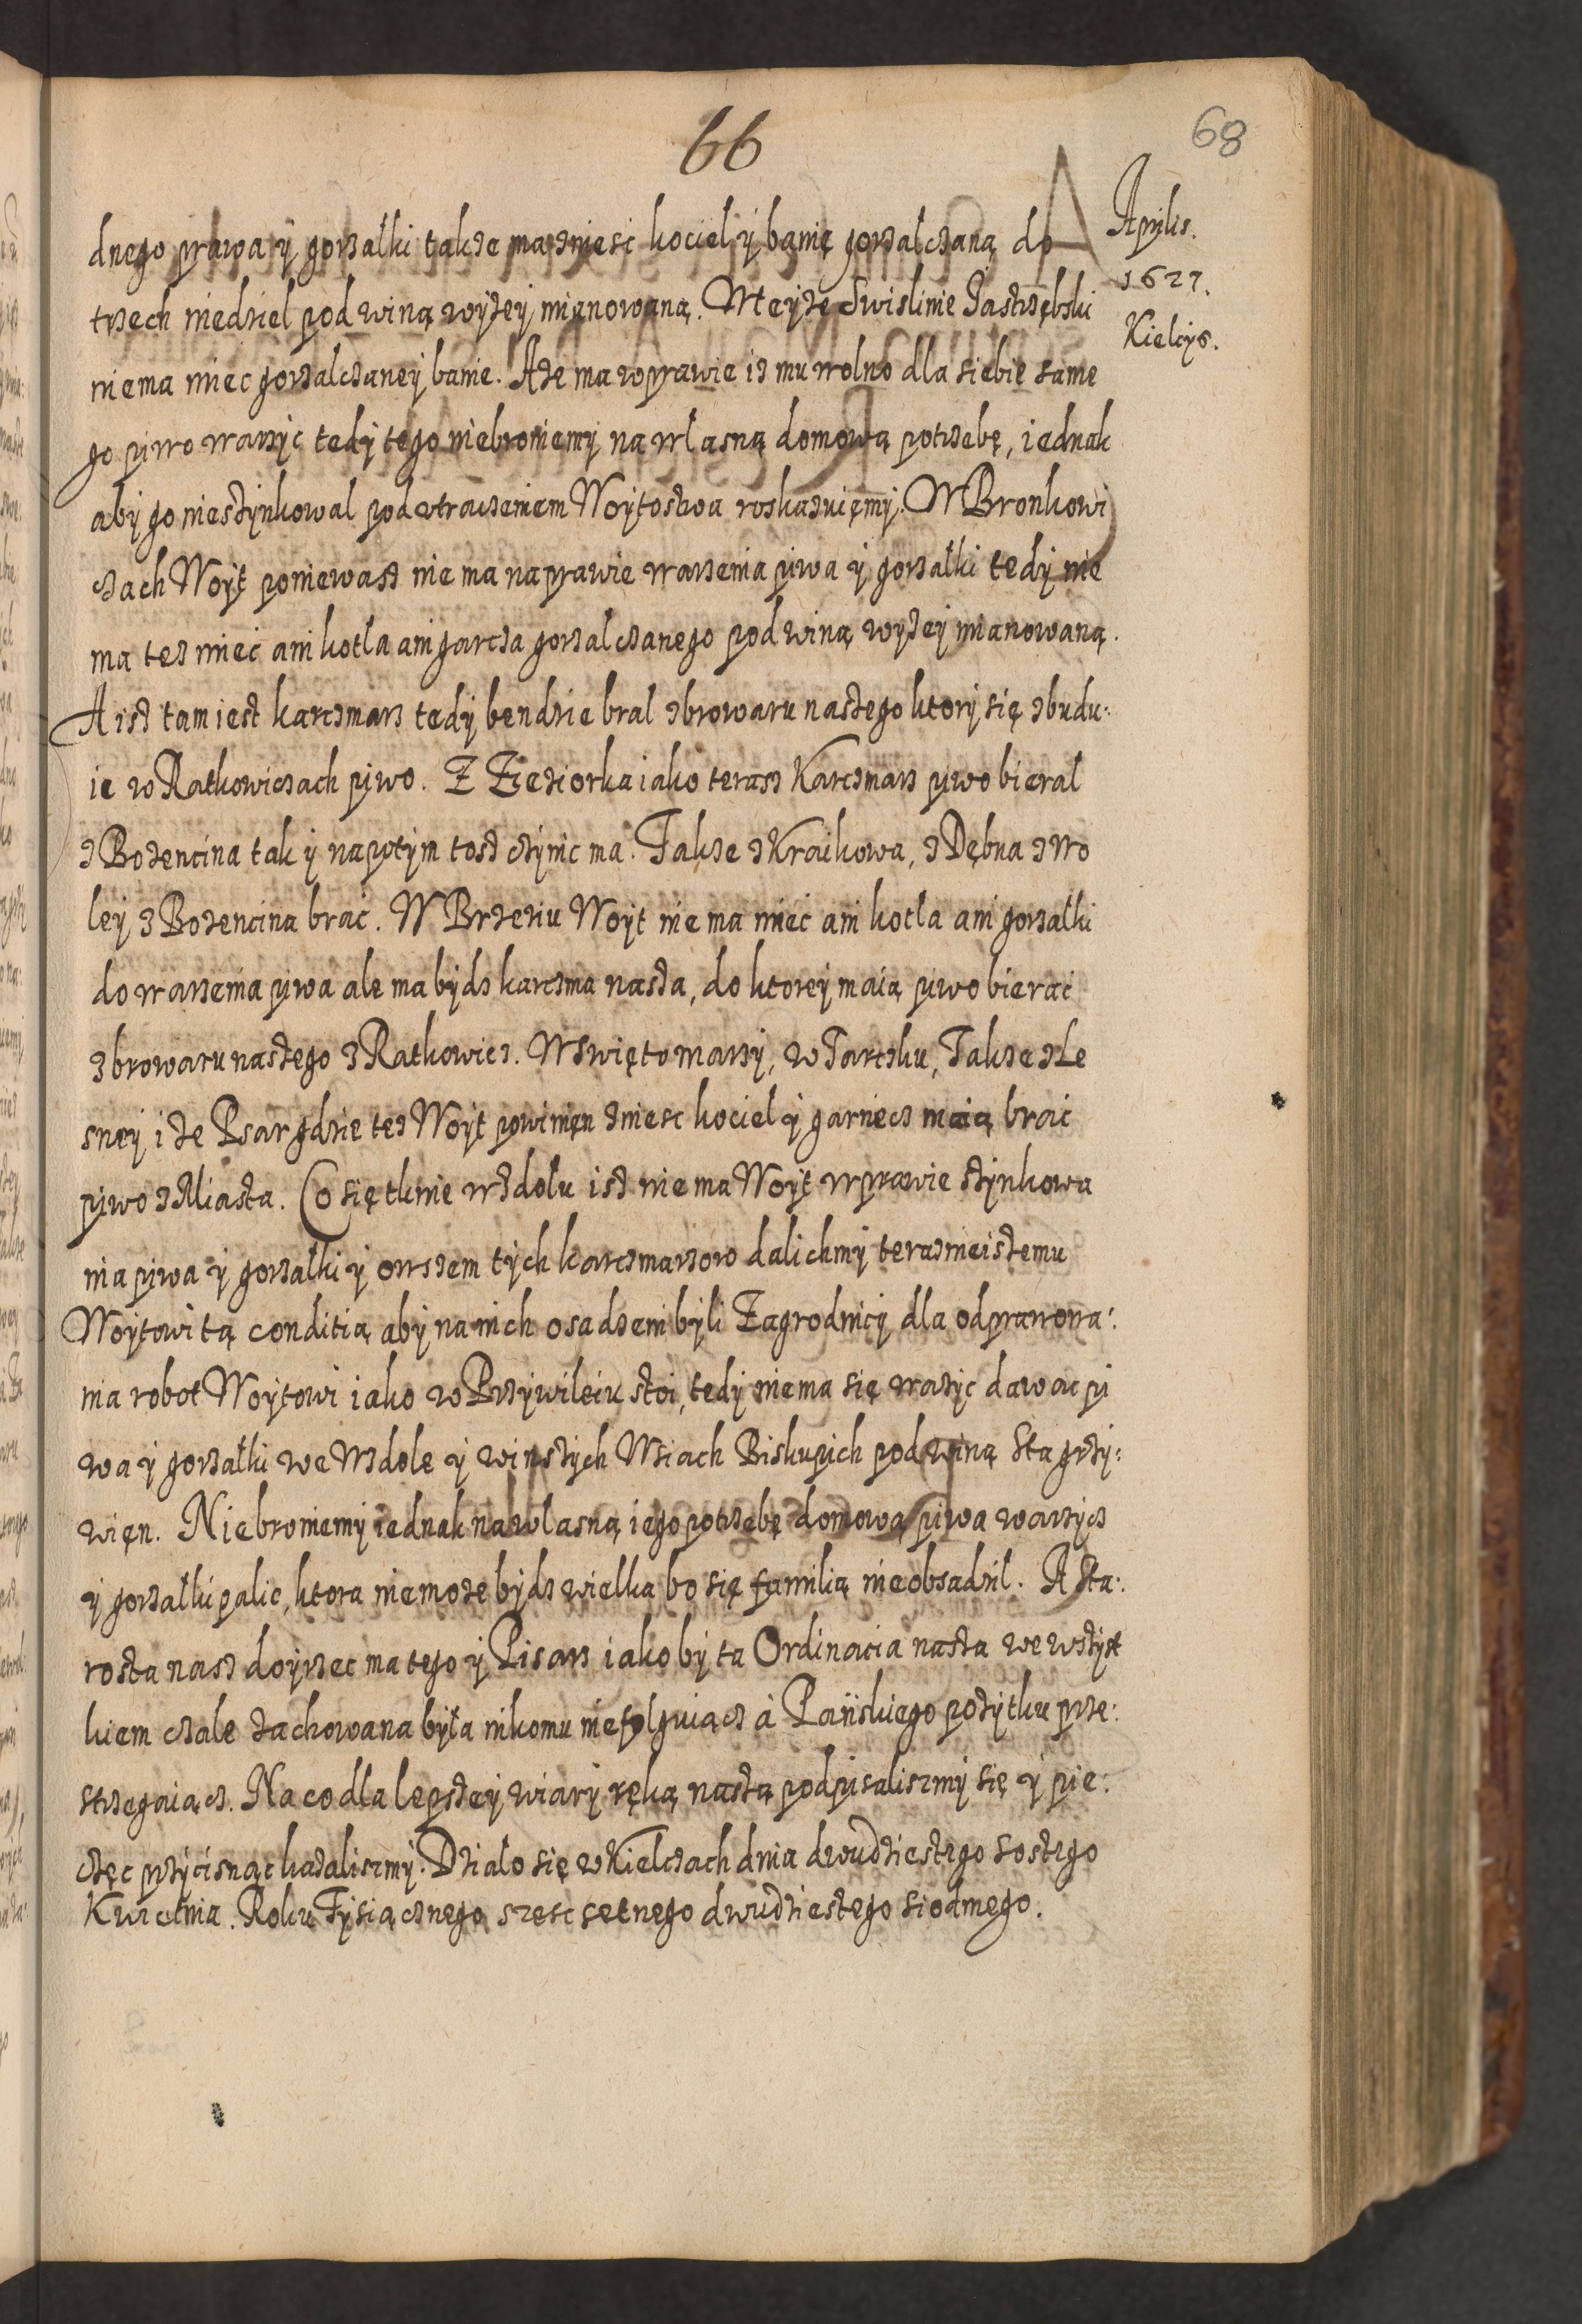 66
68
Aprilis.
1627.
Kielcys.
dnego prawa ÿ gorzałki takze ma zniesc kocieł ÿ banię gorzalczaną do
trzech niedziel pod winą wyżey mianowaną. W teyże Swislinie Jastrzębski
niema miec gorzalczaney banie. A że ma w prawie iz mu wolno dla siebie same
go piwo warzyc tedy tego niebroniemy na wlasną domową potrzebę, iednak
aby go nieszynkowal pod utraceniem Woytostwa roskazuięmy. W Bronkowi
czach Woyt poniewasz nie ma na prawie warzenia piwa y gorzałki tedy nie
ma tez mieć ani kotla ani garca gorzalczanego pod winą wyżey mianowaną.
A isz tam iest karczmarz tedy bendzie bral z browaru naszego ktory się zbudu:
ie w Ratkowiczach piwo. Z Ezeziorka iako terasz Karczmarz piwo bieral
z Bozencina tak y napotym tosz czynic ma. Takze z Kraikowa, z Dębna z Wo
ley z Bozencina brać. W Brzeziu Woyt nie ma mieć ani kotla ani gorzałki
do warzenia piwa ale ma bydz karczma nasza, do ktorey maią piwo bierać
z browaru naszego z Ratkowicz. W Swięto marzy, w Tarczku, Takze z Le
sney i ze Psar gdzie tez Woyt powinięn zniesc kociel y garniecz maią brać
piwo z Miasta. Co się tknie Wzdołu isz nie ma Woyt w prawie szynkowa
nia piwa y gorzałki y owszem tych karczmarzow dalichmy teraznieiszemu
Woytowi tą conditią aby na nich osadzeni byli Zagrodnicy dla odprawowa:
nia robot Woytowi iako w Przywileiu stoi, tedy niema się wazyc dawac pi
wa y gorzałki we Wzdole y w inszych Wsiach Biskupich pod winą Sta grzy:
więn. Niebroniemy iednak na wlasną iego potrzebę domową piwa warzycz
y gorzałki palic, ktora niemoze bydz wielka bo się familią nieobsadzil. A Sta:
rosta nasz doyrzec ma tego y Pisarz iakoby ta Ordinacia nasza we wszyst
kiem czale zachowana byla nikomu niefolguiącz à Pańskiego pozytku prze:
strzegaiącz. Na co dla lepszey wiary ręką naszą podpisaliszmy się y pie:
częc przycisnąc kazaliszmy. Dzialo się w Kielczach dnia dwudziestego szostego
Kwietnia. Roku Tysiącznego szesc setnego dwudziestego siodmego.